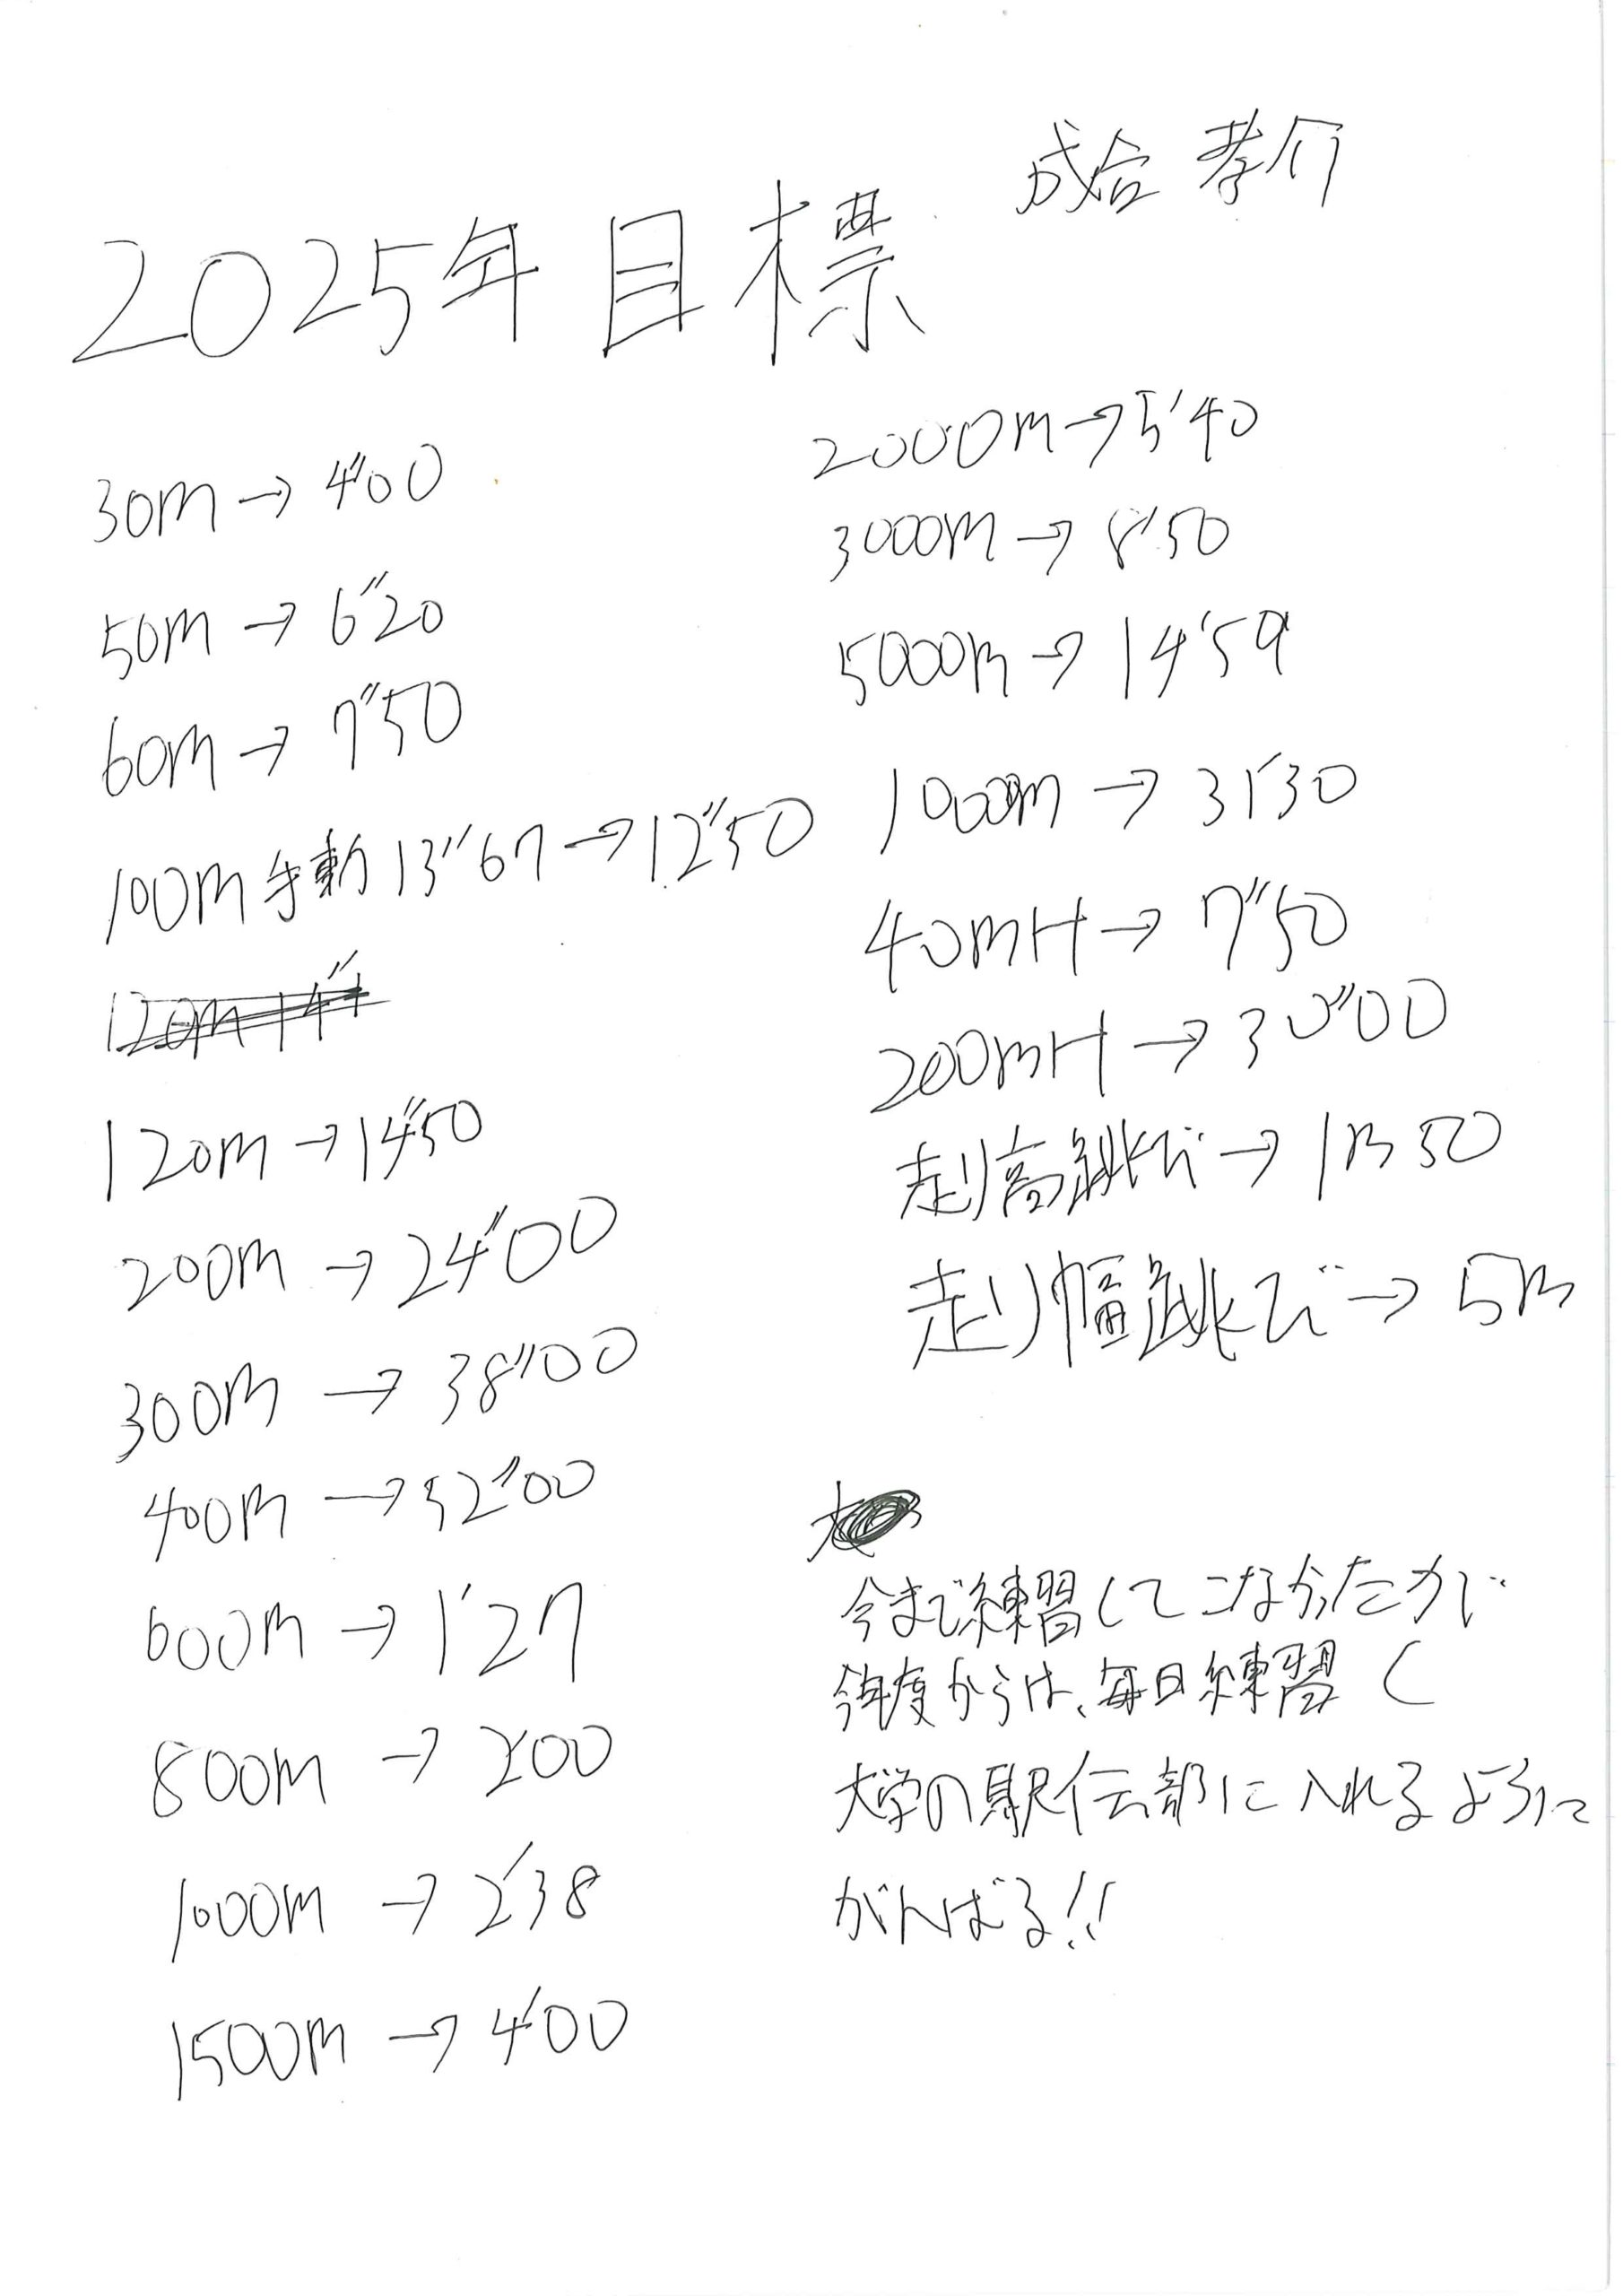 成合 孝介
2025年 目標
30m → 4"00
50m → 6"20
60m → 7"50
100m 手動 13"67 → 12"50
120m 14"
120m → 14"50
200m → 24"00
300m → 38"00
400m → 52"00
600m → 1'27
800m → 2'00
1000m → 2'38
1500m → 4'00
2000m → 5'40
3000m → 8'50
5000m → 14'59
10000m → 31'30
40mH → 7"50
200mH → 30"00
走り高跳び → 1m50
走り幅跳び → 5m
今まで練習してこなかったが
今年度からは、毎日練習し
大学の駅伝部に入れるように
がんばる!!